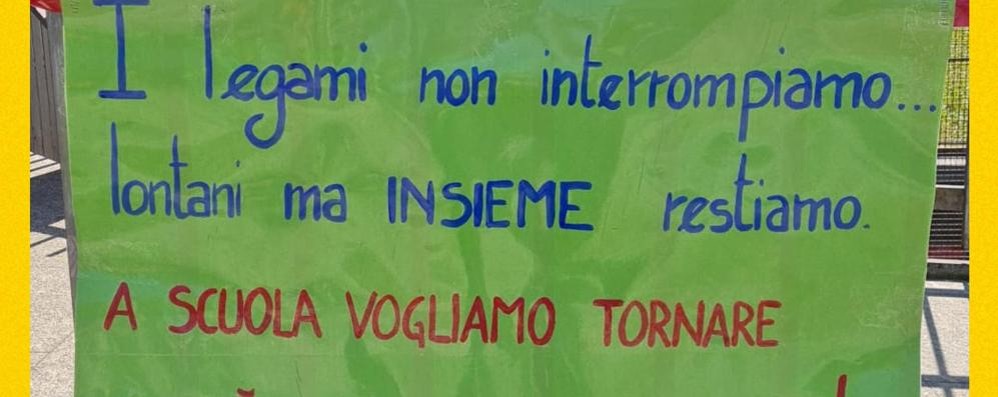 I legami non interrompiamo...
lontani ma INSIEME restiamo.
A SCUOLA VOGLIAMO TORNARE